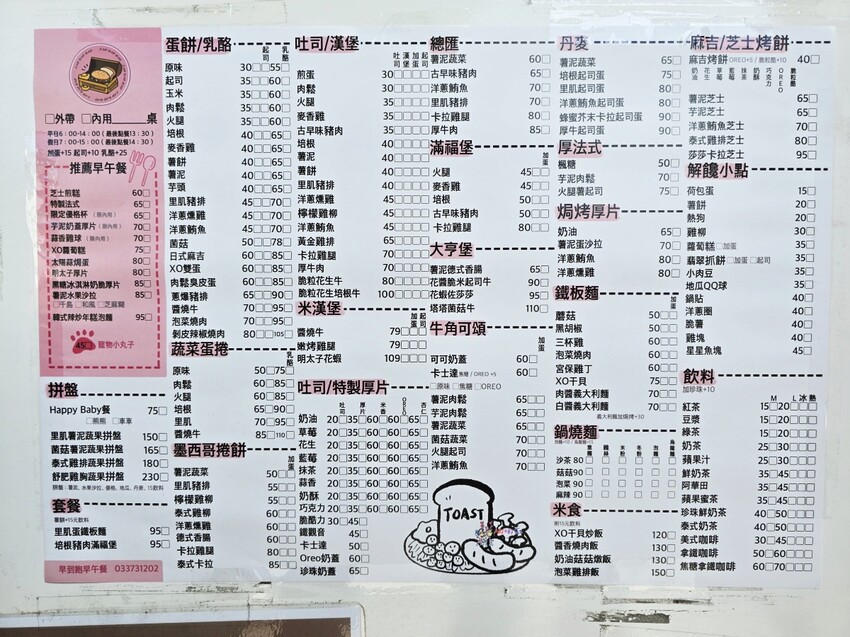 □外帶 □內用 ___桌
平日6:00-14:00(最後點餐13:30)
假日7:00-15:00(最後點餐14:30)
加蛋+15 起司+10 乳酪+25
推薦早午餐
芝士煎糕 60□
特製法式 65□
限定優格杯(限內用) 65□
芋泥奶蓋厚片(限內用) 70□
蒜香雞球(限內用) 70□
XO蘿蔔糕 75□
太陽蒜焗蛋 80□
明太子厚片 80□
黑糖冰淇淋奶脆厚片 85□
薯泥水果沙拉 85□
□千島 □和風 □芝麻醬
韓式辣炒年糕泡麵 95□
45□ 寵物小丸子
拼盤
Happy Baby餐 75□
□熊熊 □車車
里肌薯泥蔬果拼盤 150□
菌菇薯泥蔬果拼盤 165□
泰式雞排蔬果拼盤 180□
舒肥雞胸蔬果拼盤 230□
套餐
薯餅+15元飲料
里肌蛋鐵板麵 95□
培根豬肉滿福堡 95□
早到飽早午餐 033731202
蛋餅/乳酪 起司 乳酪
原味 30□□55□
起司 35□□60□
玉米 35□□60□
肉鬆 35□□60□
火腿 35□□60□
培根 40□□65□
麥香雞 40□□65□
薯餅 40□□65□
薯泥 40□□65□
芋頭 40□□65□
里肌豬排 45□□70□
洋蔥燻雞 45□□70□
洋蔥鮪魚 45□□70□
菌菇 50□□78□
日式麻吉 55□□80□
XO雙蛋 55□□80□
肉鬆臭皮蛋 60□□85□
蔥爆豬排 65□□90□
醬燒牛 70□□95□
泡菜燒肉 70□□95□
剝皮辣椒燒肉 80□□105
蔬菜蛋捲 乳酪
原味 50□75□
肉鬆 60□85□
火腿 60□85□
培根 65□90□
里肌 70□95□
醬燒牛 85□110□
墨西哥捲餅 加蛋
薯泥蔬菜 50□□
里肌豬排 55□□
檸檬雞柳 60□□
泰式雞柳 60□□
洋蔥燻雞 60□□
德式香腸 60□□
卡拉雞腿 80□□
泰式卡拉 85□□
吐司/漢堡 吐司 漢堡 加蛋 起司
煎蛋 30□□□□
肉鬆 30□□□□
火腿 35□□□□
麥香雞 35□□□□
古早味豬肉 35□□□□
培根 40□□□□
薯泥 40□□□□
薯餅 40□□□□
里肌豬排 45□□□□
洋蔥燻雞 45□□□□
檸檬雞柳 45□□□□
洋蔥鮪魚 45□□□□
黃金雞排 65□□□□
卡拉雞腿 70□□□□
厚牛肉 85□□□□
脆粒花生牛 80□□□□
脆粒花生培根牛 100□□□□
米漢堡 加蛋 起司
醬燒牛 79□□□
嫩烤雞腿 79□□□
明太子花蝦 109□□□
吐司/特製厚片
吐司 厚片 米香 OREO 杏仁
奶油 20□35□60□60□65□
草莓 20□35□60□60□65□
花生 20□35□60□60□65□
藍莓 20□35□60□60□65□
抹茶 20□35□60□60□65□
蒜香 20□35□60□60□65□
奶酥 20□35□60□60□65□
巧克力 20□35□60□60□65□
脆酷力 30□45□
鐵觀音 45□
卡士達 50□
Oreo奶蓋 60□
珍珠奶蓋 65□
總匯
薯泥蔬菜 60□
古早味豬肉 65□
洋蔥鮪魚 70□
里肌豬排 70□
卡拉雞腿 80□
厚牛肉 85□
滿福堡 加蛋
火腿 45□□
麥香雞 45□□
培根 50□□
古早味豬肉 50□□
卡拉雞腿 80□□
大亨堡
薯泥德式香腸 65□
花醬脆米起司牛 90□
花蝦佐莎莎 95□
塔塔菌菇牛 110□
牛角可頌 加蛋
可可奶蓋 60□
卡士達焦糖/OREO+5 60□
□原味 □焦糖 □OREO
薯泥肉鬆 60□□
芋泥肉鬆 60□□
薯泥蔬菜 65□□
菌菇蔬菜 70□□
火腿起司 70□□
洋蔥鮪魚 70□□
TOAST
丹麥
薯泥蔬菜 65□
培根起司蛋 75□
里肌起司蛋 80□
洋蔥鮪魚起司蛋 80□
蜂蜜芥末卡拉起司蛋 90□
厚牛起司蛋 90□
厚法式
楓糖 50□
芋泥肉鬆 70□
火腿薯起司 75□
焗烤厚片
奶油 65□
薯泥蛋沙拉 70□
洋蔥鮪魚 80□
洋蔥燻雞 80□
鐵板麵 加蛋
蘑菇 50□□
黑胡椒 50□□
三杯雞 60□□
泡菜燒肉 60□□
宮保雞丁 60□□
XO干貝 75□□
肉醬義大利麵 70□□
白醬義大利麵 70□□
義大利麵加焗烤+30
鍋燒麵
沙茶 80 □□□□□□
菇菇 90 □□□□□□
泡菜 90 □□□□□□
麻辣 90 □□□□□□
米食
附15元飲料
XO干貝炒飯 120□
醬香燒肉飯 130□
奶油菇菇燉飯 130□
泡菜雞排飯 150□
麻吉/芝士烤餅
麻吉烤餅 OREO+5/脆粒酷+10 40□
奶油 花生 草莓 藍莓 抹茶 奶酥 巧克力 OREO 脆粒酷
薯泥芝士 65□
芋泥芝士 65□
洋蔥鮪魚芝士 70□
泰式雞排芝士 80□
莎莎卡拉芝士 95□
解饞小點
荷包蛋 15□
薯餅 20□
熱狗 20□
雞柳 30□
蘿蔔糕 □加蛋 35□
翡翠抓餅 □加蛋□起司 35□
小肉豆 35□
地瓜QQ球 35□
鍋貼 35□
洋蔥圈 40□
脆薯 40□
雞塊 40□
星星魚塊 45□
飲料
加珍珠+10 M L 冰 熱
紅茶 15□20□□□
豆漿 15□20□□□
綠茶 15□20□□
奶茶 20□30□□□
蘋果汁 25□35□□
鮮奶茶 35□45□□□
阿華田 35□45□□□
蘋果蜜茶 35□45□□
珍珠鮮奶茶 40□50□□□
泰式奶茶 40□50□□
美式咖啡 30□45□□□
拿鐵咖啡 50□60□□□
焦糖拿鐵咖啡 60□70□□□